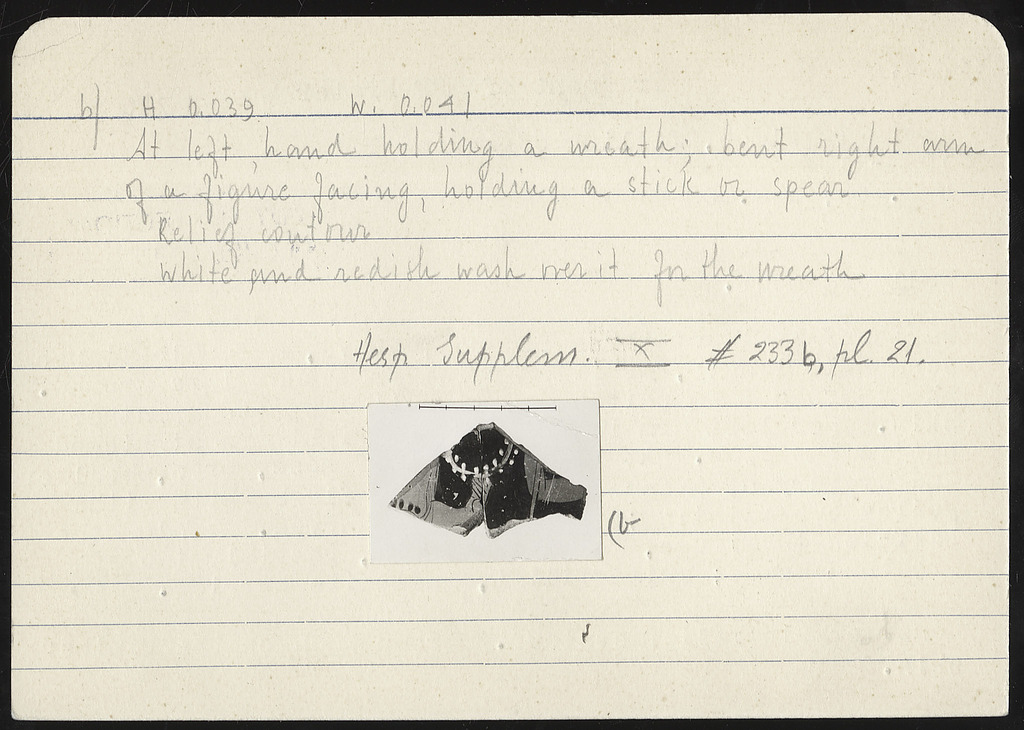 b) H 0.039 W. 0.041
At left, hand holding a wreath; bent right arm
of a figure facing, holding a stick or spear
Relief contour
White and redish wash over it for the wreath
Hesp Supplem. X # 233 b, pl. 21.
(b